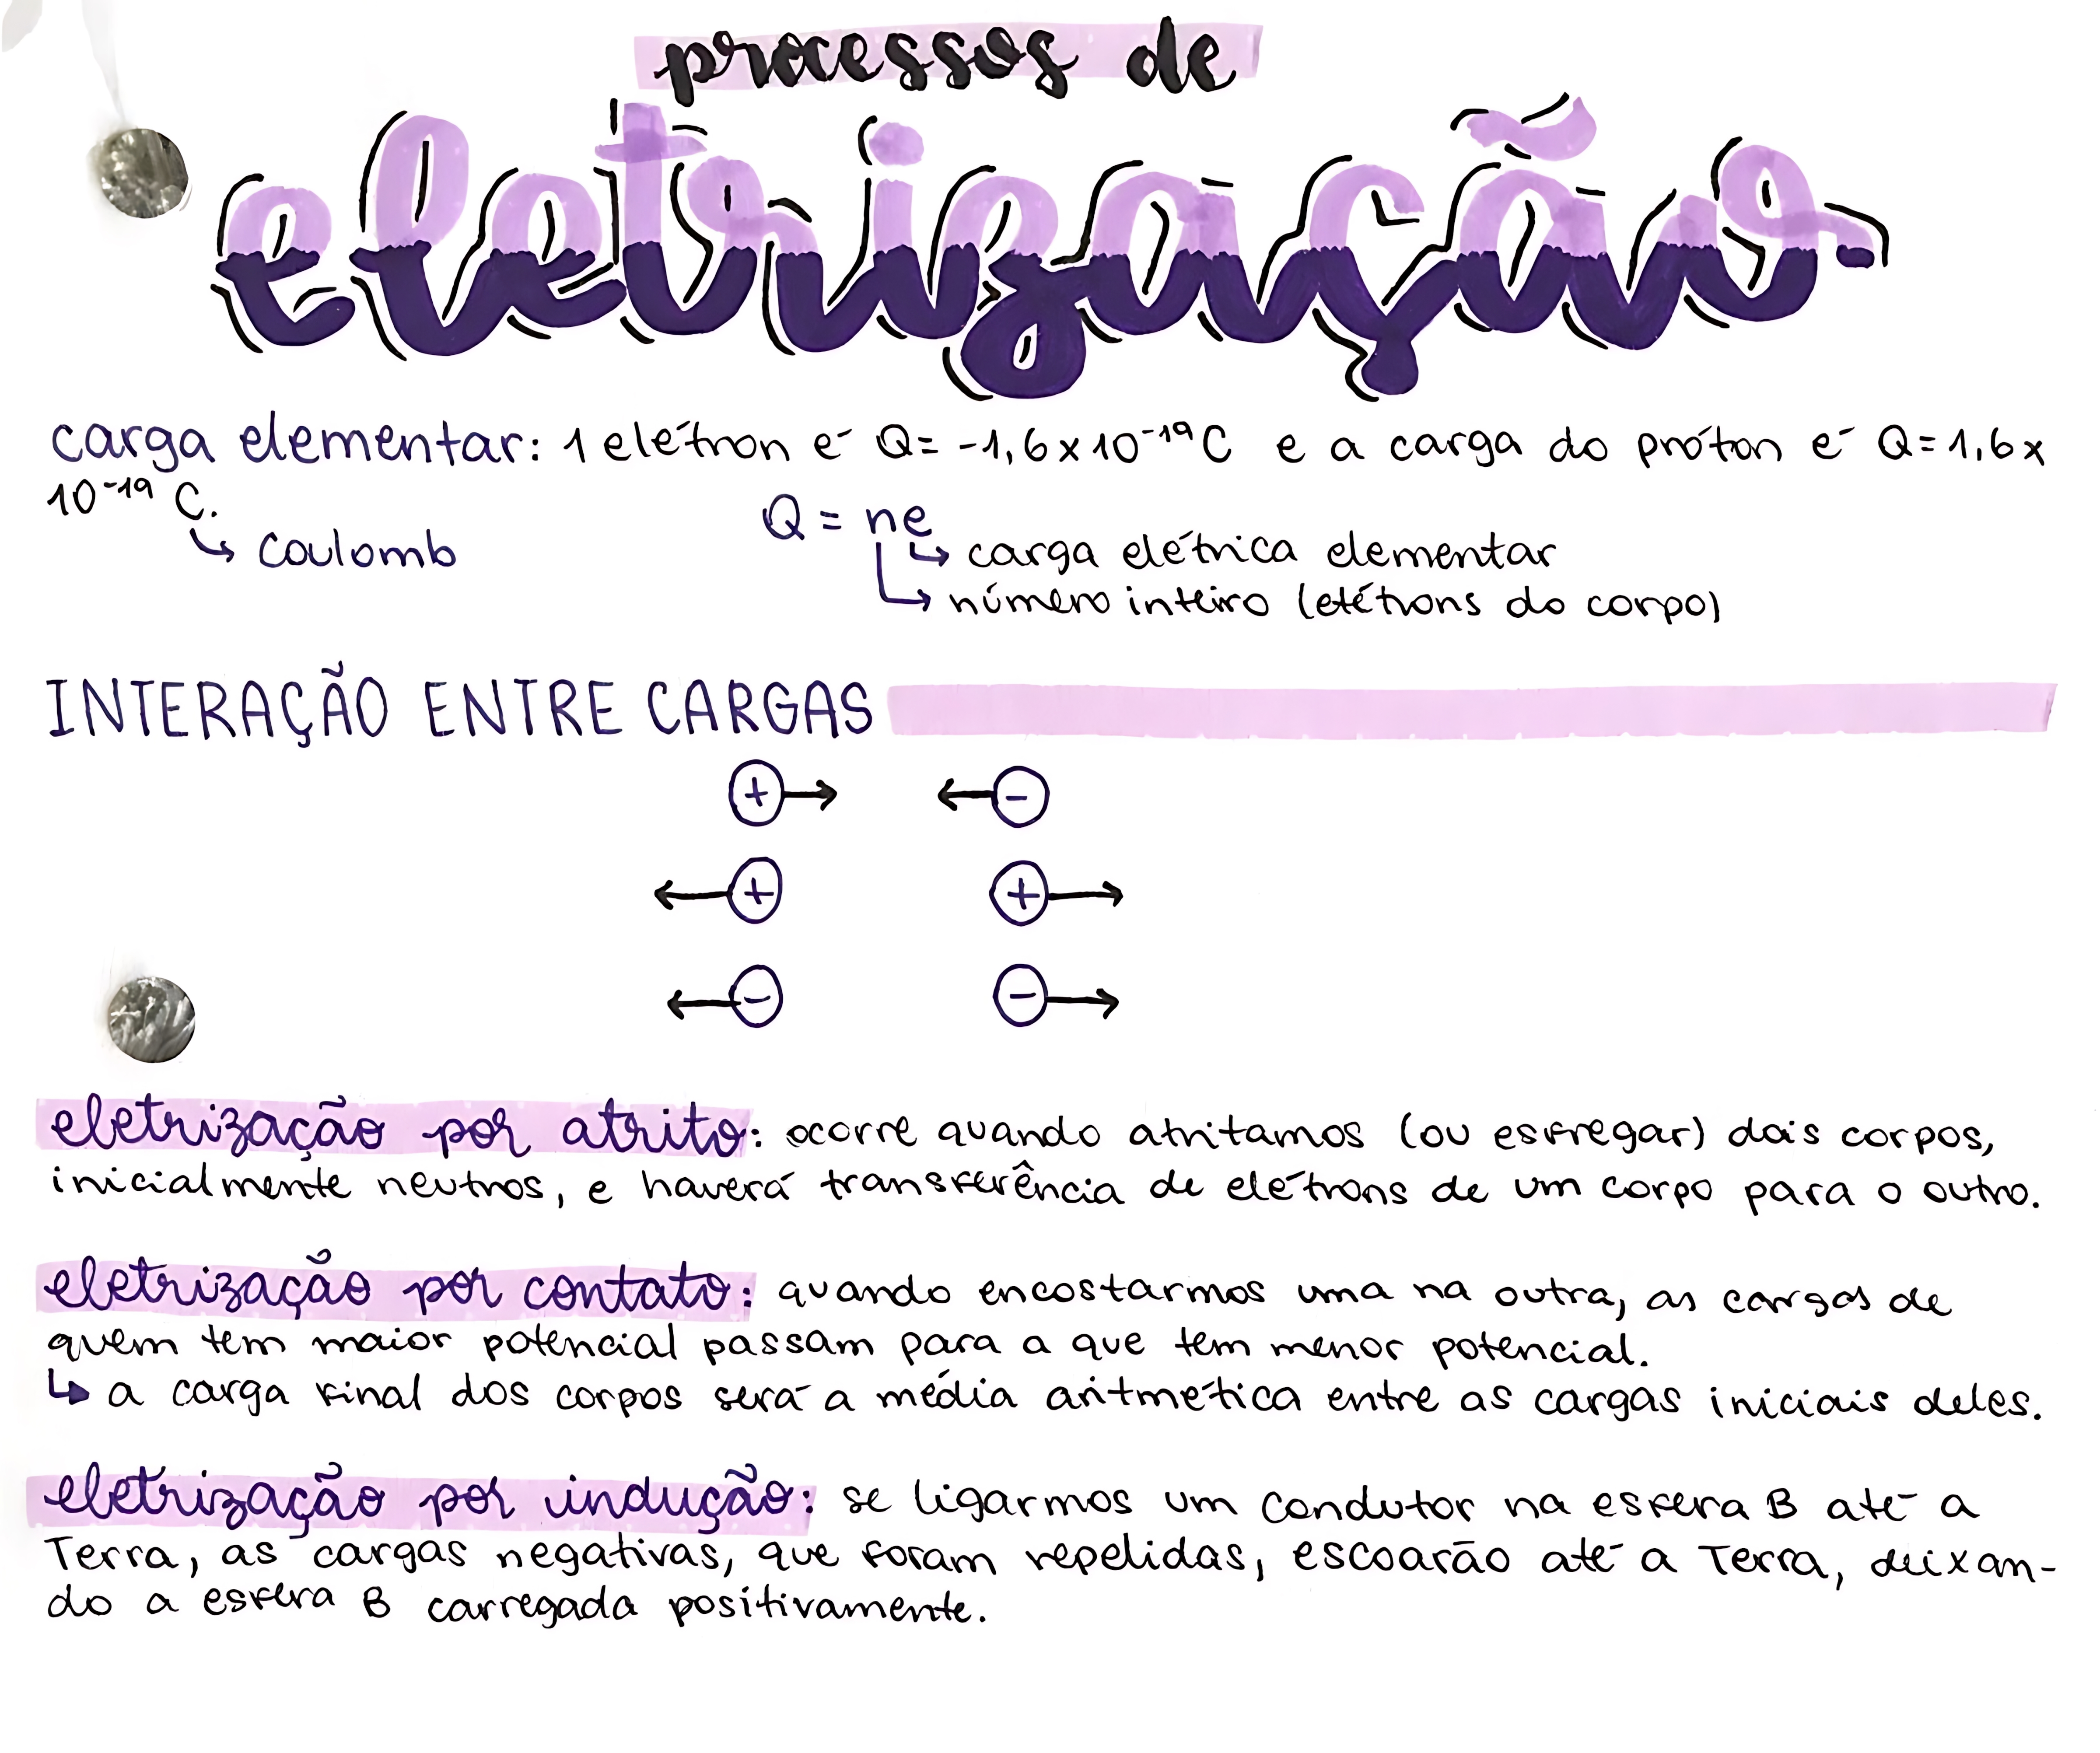 processos de
eletrização
carga elementar: 1 elétron é Q= -1,6x10⁻¹⁹C e a carga do próton é Q=1,6x
10⁻¹⁹ C.
↳ Coulomb
Q = ne
↳ carga elétrica elementar
↳ número inteiro (elétrons do corpo)
INTERAÇÃO ENTRE CARGAS
+ → ← -
← + + →
← - - →
eletrização por atrito: ocorre quando atritamos (ou esfregar) dois corpos,
inicialmente neutros, e haverá transferência de elétrons de um corpo para o outro.
eletrização por contato: quando encostarmos uma na outra, as cargas de
quem tem maior potencial passam para a que tem menor potencial.
↳ a carga final dos corpos será a média aritmética entre as cargas iniciais deles.
eletrização por indução: se ligarmos um condutor na esfera B até a
Terra, as cargas negativas, que foram repelidas, escoarão até a Terra, deixan-
do a esfera B carregada positivamente.